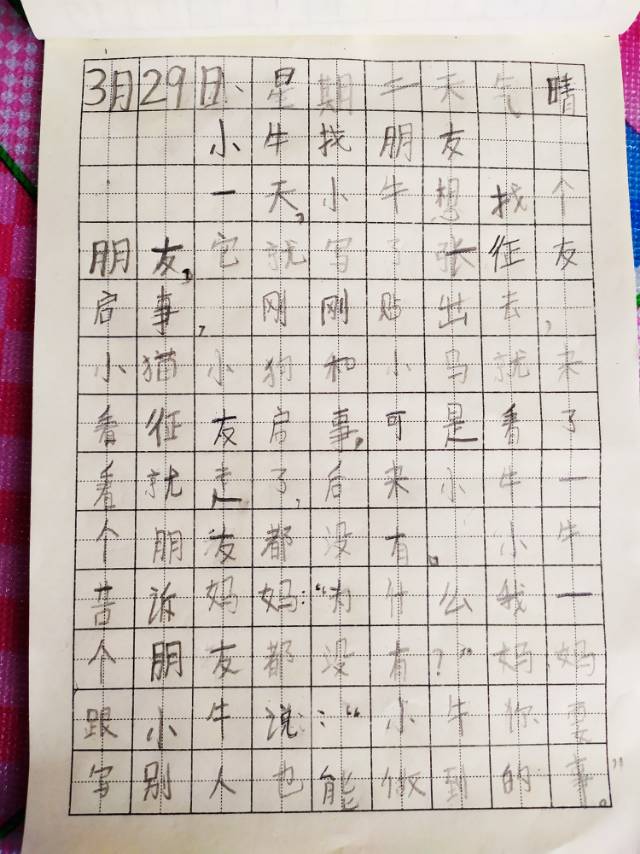 3月29日、星期一天气晴
小牛找朋友
一天,小牛想找个
朋友,它就写了张征友
启事,刚刚贴出去,
小猫小狗和小鸟就来
看征友启事,可是看了
看就走了,后来小牛一
个朋友都没有。小牛
告诉妈妈:“为什么我一
个朋友都没有?”妈妈
跟小牛说:“小牛你要
写别人也能做到的事。”